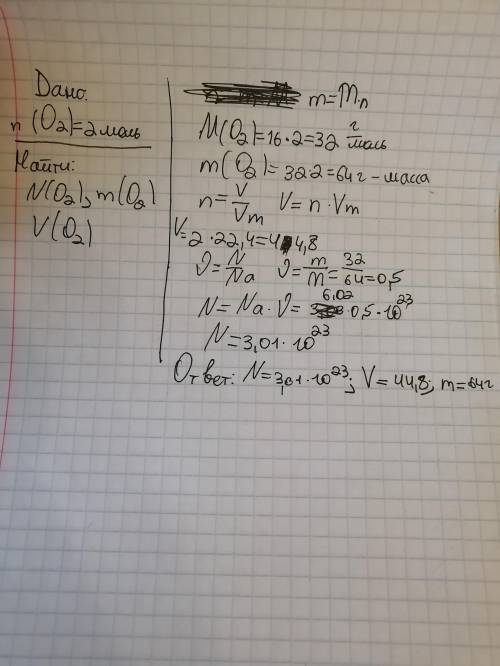 Дано:
n (O₂)=2 моль
Найти:
N(O₂), m(O₂)
V(O₂)
m=M·n
M(O₂)=16·2=32 г/моль
m(O₂)=32·2=64г-масса
n=V/Vm V=n·Vm
V=2·22,4=44,8
ϑ=N/Na ϑ=m/M=32/64=0,5
N=Na·ϑ=6,02·0,5·10²³
N=3,01·10²³
Ответ: N=3,01·10²³; V=44,8; m=64г